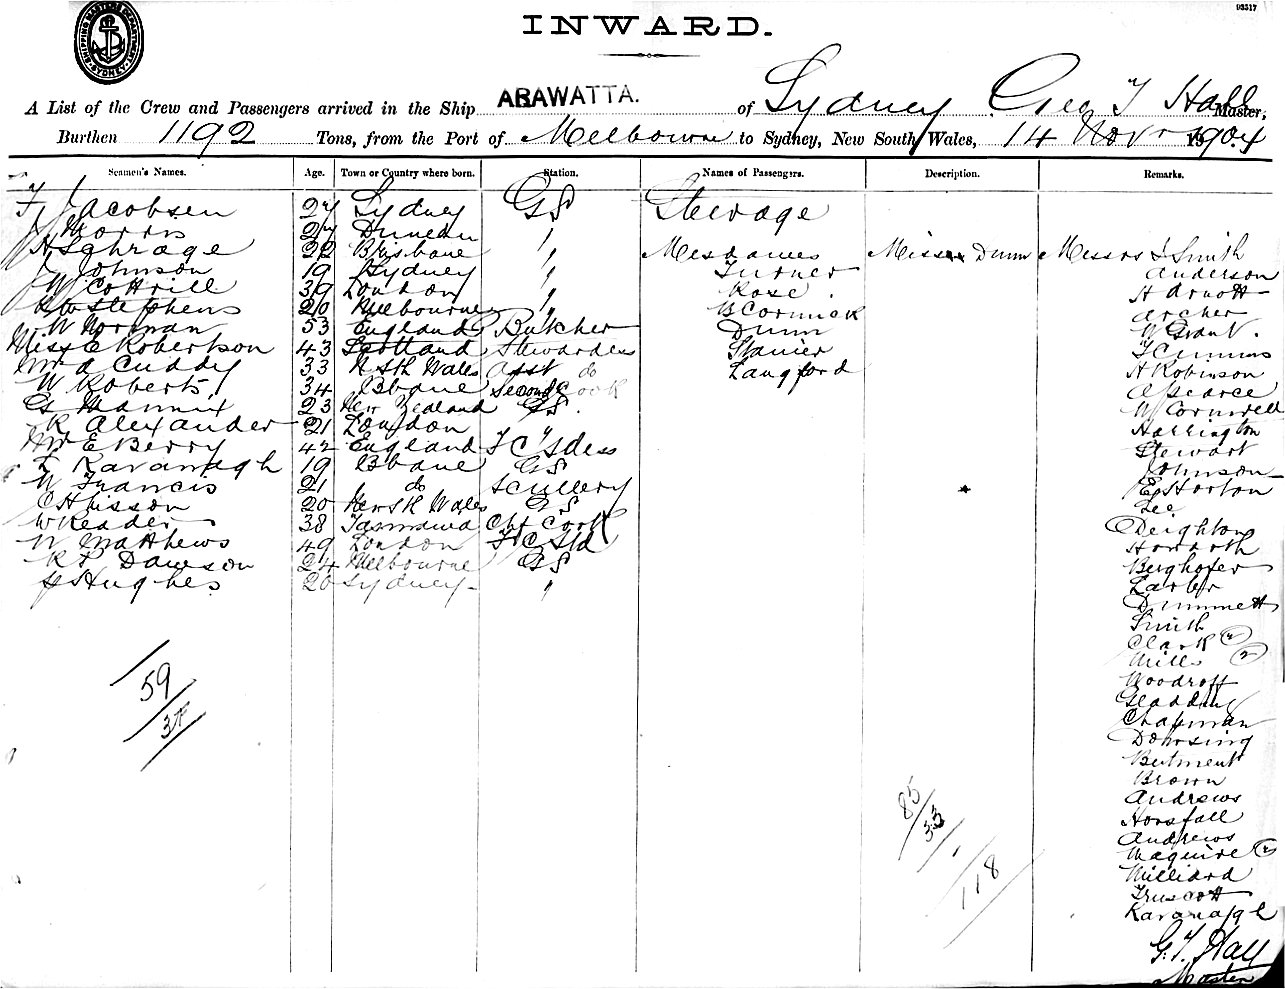 03517
SHIPPING MASTERS DEPARTMENT SYDNEY
INWARD.
A List of the Crew and Passengers arrived in the Ship ARAWATTA. of Sydney Geo T Hall Master,
Burthen 1192 Tons, from the Port of Melbourne to Sydney, New South Wales, 14 Novr 1904
Seamen's Names. Age. Town or Country where born. Station. Names of Passengers. Description. Remarks.
F Jacobsen 27 Sydney GS Steerage
J Morris 27 Dunedin "
H Schrage 22 Brisbane " Mesdames Misses Dunn Messrs J Smith
J Johnson 19 Sydney " Turner Anderson
W Cottrill 39 London " Rose H Arnott
Stephens 20 Melbourne " McCormick Archer
W Norman 53 England Butcher Dunn W Grant
Miss E Robertson 43 Scotland Stewardess Stanier T Cummins
Mrs A Cuddy 33 N Sth Wales Asst do Langford H Robinson
W Roberts 34 Bbane Second Cook A Pearce
G Mannix 23 New Zealand GS W Cornwell
R Alexander 21 London " Harrington
Mrs E Berry 42 England F C S'dess Stewart
L Kavanagh 19 Bbane GS Johnson
W Francis 21 do Scullery E Horton
C Hisson 20 New Sth Wales GS Lee
W Reader 38 Tasmania Chf Cook Deighton
W Matthews 49 London F C Std Howarth
R F Dawson 24 Melbourne GS Berghofer
J Hughes 20 Sydney " Larter
Dummett
Smith
Clark (2)
Mills (2)
Woodroff
Gladding
Chapman
Dowsing
Butment
Brown
Andrews
Horsfall
Andrews
Maguire (2)
Milliard
Truscott
Kavanagh
59
38
85
33
118
G. T. Hall
Master